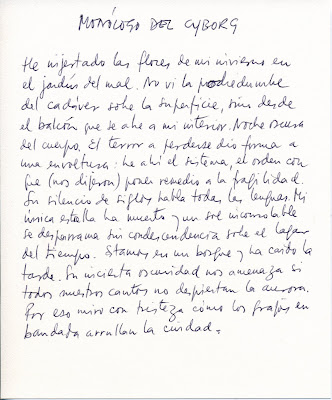 MONÓLOGO DEL CYBORG
He injertado las flores de mis inviernos en
el jardín del mal. No vi la podredumbre
del cadáver sobre la superficie, sino desde
el balcón que se abre a mi interior. Noche oscura
del cuerpo. El terror a perderse dio forma a
una envoltura: he ahí el sistema, el orden con
que (nos dijeron) poner remedio a la fragilidad.
Su silencio de siglos habla todas las lenguas. Mi
única estrella ha muerto y un sol inconsolable
se desparrama sin condescendencia sobre el lagar
del tiempo. Estamos en un bosque y ha caído la
tarde. Su incierta oscuridad nos amenaza si
todos nuestros cantos no despiertan la aurora.
Por eso miro con tristeza cómo los grajos en
bandada arrullan la ciudad.